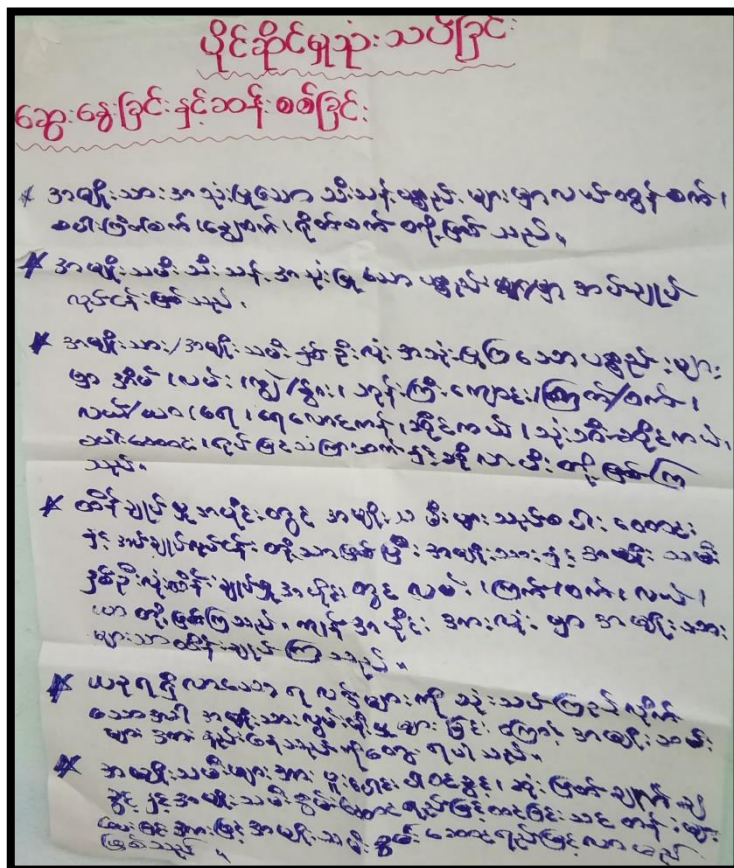 ပိုင်ဆိုင်မှုသုံးသပ်ခြင်း
ဆွေးနွေးခြင်းနှင့်ဆန်းစစ်ခြင်း
* အမျိုးသားအသုံးပြုသော သီးသန့်ပစ္စည်းများမှာလယ်ထွန်စက်၊
စပါးကြိတ်စက်၊ချွေစက်၊ရိုက်စက် တို့ဖြစ်သည်။
* အမျိုးသမီးသီးသန့်အသုံးပြုသော ပစ္စည်းများမှာ အပ်ချုပ်
လုပ်ငန်းဖြစ်သည်။
* အမျိုးသား/အမျိုးသမီးနှစ်ဦးလုံး အသုံးပြုကြသောပစ္စည်းများ
မှာ အိမ်၊လမ်း၊ကျွဲ/နွား၊ဘုန်းကြီးကျောင်း၊ကြက်/ဝက်၊
လယ်/ယာ၊ရေ၊ရေလှောင်ကန်၊ဆိုင်ကယ်၊သုံးဘီးဆိုင်ကယ်၊
စပါးတောင်း၊ရုပ်မြင်သံကြားစက်နှင့်ဆိုလာမီးတို့ဖြစ်ကြ
သည်။
* ထိန်းချုပ်မှုအပိုင်းတွင် အမျိုးသမီးများသည်စပါးတောင်း
နှင့်အပ်ချုပ်လုပ်ငန်းတို့သာဖြစ်ပြီး အမျိုးသားနှင့်အမျိုးသမီး
နှစ်ဦးလုံးထိန်းချုပ်မှုအပိုင်းတွင် လမ်း၊ကြက်၊ဝက်၊လယ်၊
ယာတို့ဖြစ်ကြသည်။ကျန်အပိုင်းအားလုံးမှာအမျိုးသား
များသာထိန်းချုပ်ကြသည်။
* ယခုရရှိလာသောရလဒ်များကိုသုံးသပ်ကြည့်လိုက်
သောအခါ အမျိုးသားလွှမ်းမိုးမှုများခြင်းကြောင့်အမျိုးသမီး
များအားနည်းနေသည်ကိုတွေ့ရပါသည်။
* အမျိုးသမီးများအား ပူးပေါင်းပါဝင်ခွင့်၊ဆုံးဖြတ်ချက်ချ
ခွင့်နှင့်အမျိုးသမီးစွမ်းဆောင်ရည်မြှင့်တင်ခြင်းသင်တန်းများ
ပေးခြင်းအားဖြင့်အမျိုးသမီးစွမ်းဆောင်ရည်မြင့်လာမည်
ဖြစ်သည်။